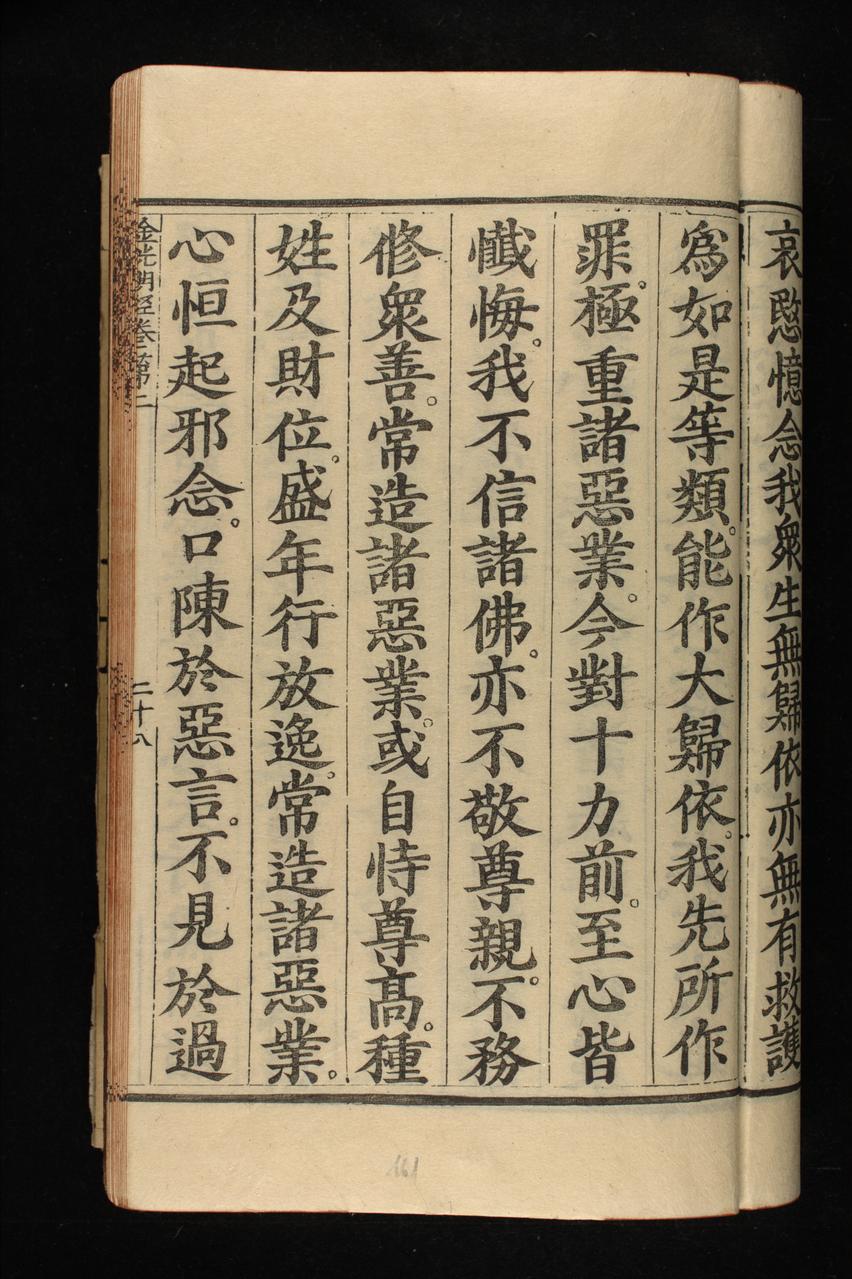 哀愍憶念我衆生無歸依亦無有救護
爲如是等類。能作大歸依。我先所作
罪。極重諸惡業。今對十力前。至心皆
懺悔。我不信諸佛。亦不敬尊親。不務
修衆善。常造諸惡業。或自恃尊高。種
姓及財位。盛年行放逸。常造諸惡業。
心恒起邪念。口陳於惡言。不見於過
金光明經卷第二
二十八
161